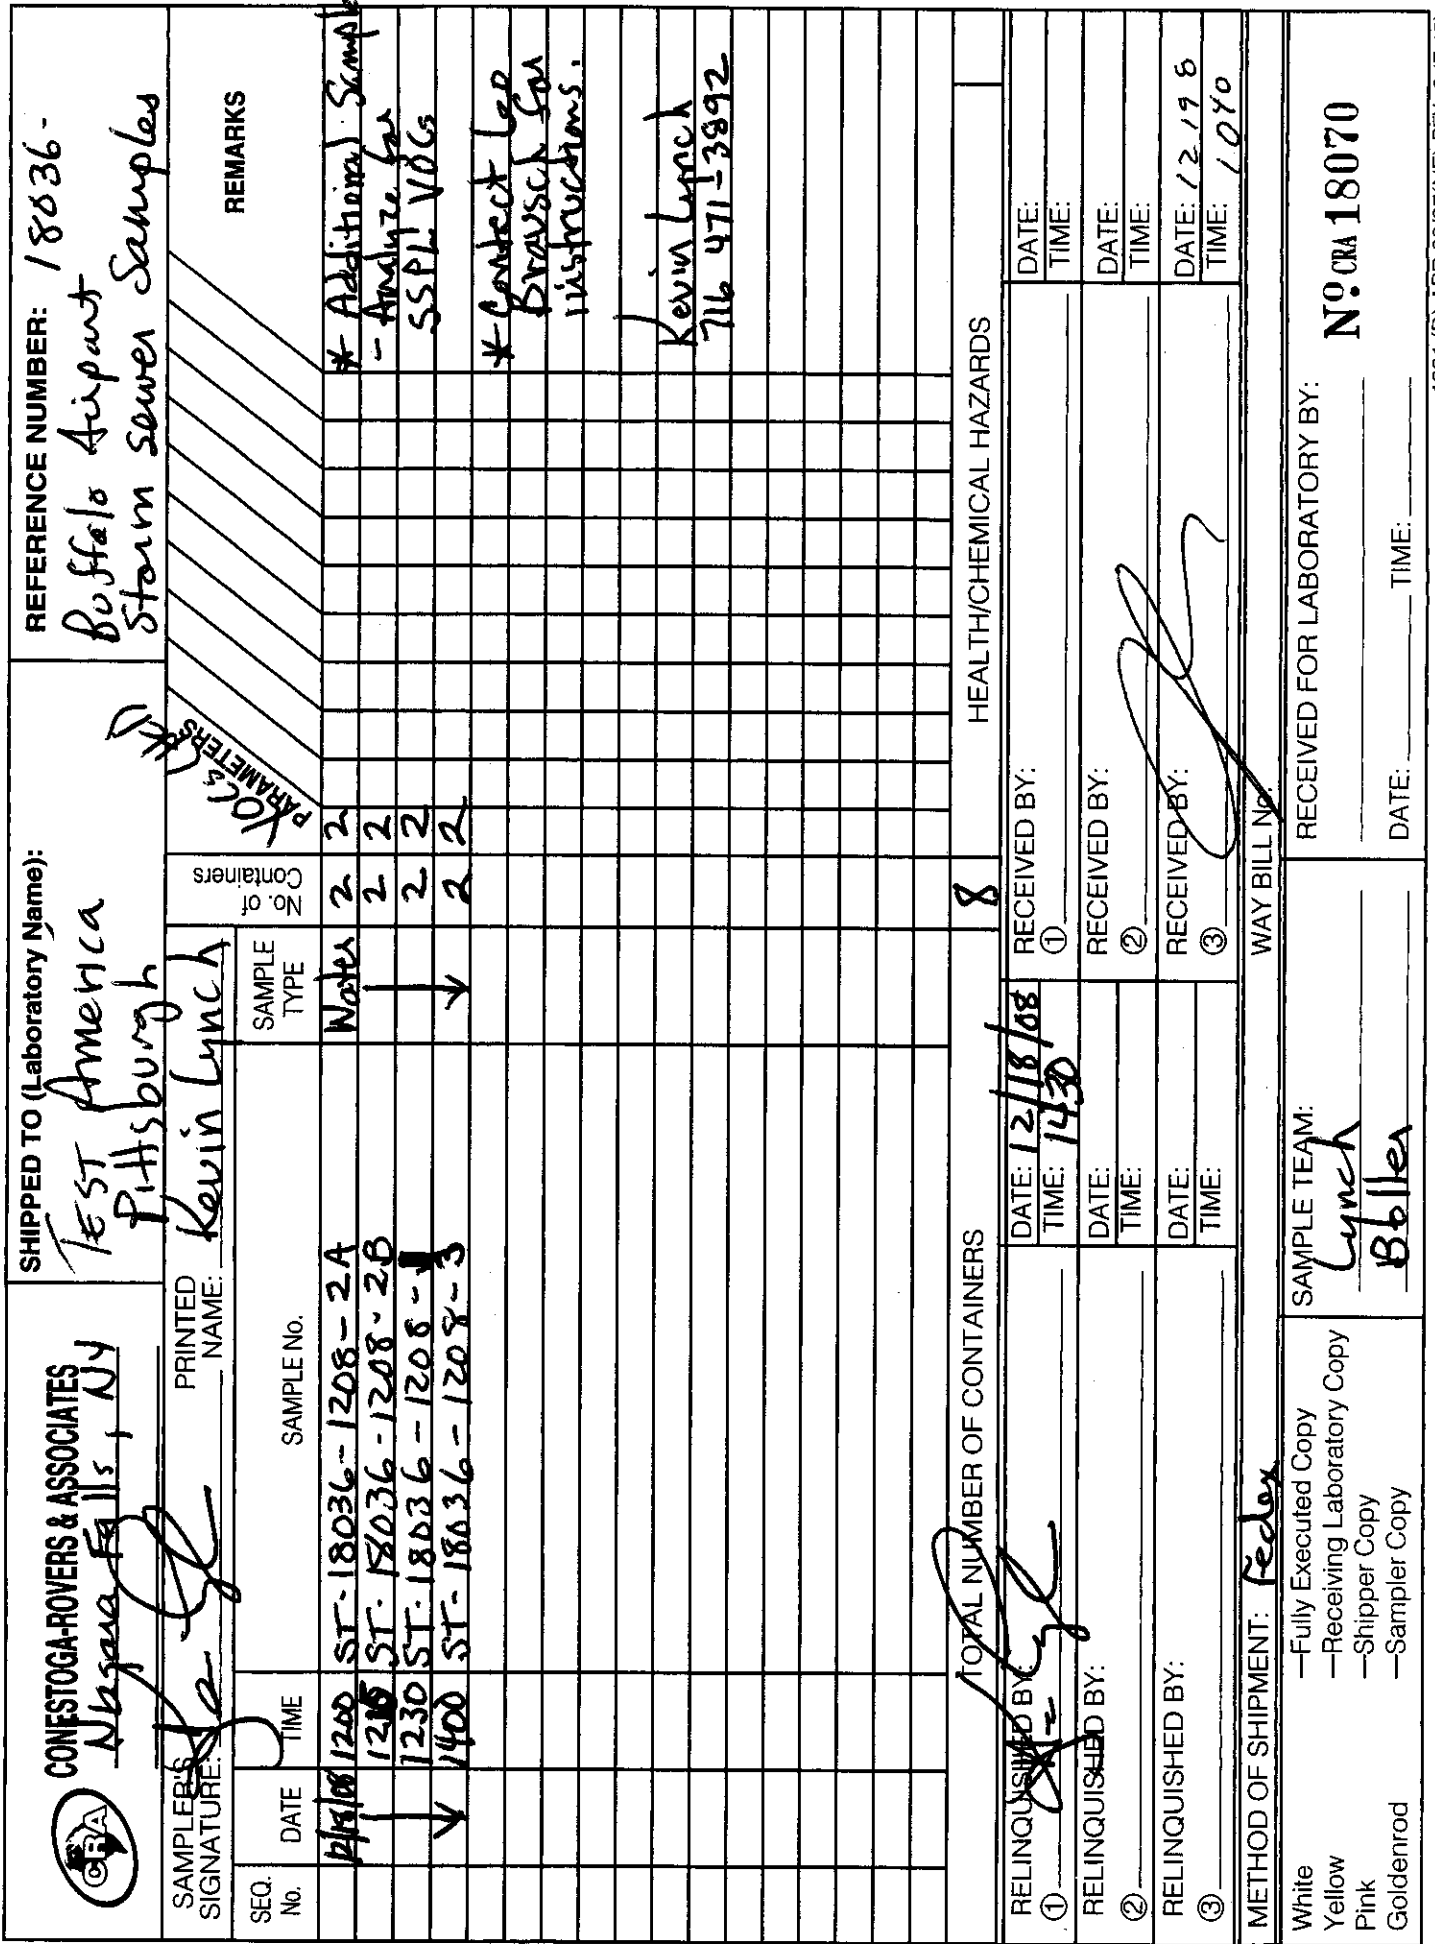 CRA
CONESTOGA-ROVERS & ASSOCIATES
Niagara Falls, NY
SHIPPED TO (Laboratory Name):
TEST America
Pittsburgh
REFERENCE NUMBER: 18036-
Buffalo Airport
Storm Sewer Samples
SAMPLER'S
SIGNATURE:
PRINTED
NAME: Kevin Lynch
No. of
Containers
PARAMETERS
VOCs
REMARKS
SEQ.
No.
DATE
TIME
SAMPLE No.
SAMPLE
TYPE
12/18/08 1200 ST-18036-1208-2A Water 2 2 * Additional Sample
ST-18036-1208-2B 2 2 - Analyze for
1230 ST-18036-1208- 2 2 SSPL VOCs
1400 ST-18036-1208-3 2 2
* Contact Leo
Brausch for
instructions.
Kevin Lynch
716 471-3892
TOTAL NUMBER OF CONTAINERS 8
HEALTH/CHEMICAL HAZARDS
RELINQUISHED BY:
①
DATE: 12/18/08
TIME: 1430
RECEIVED BY:
①
DATE:
TIME:
RELINQUISHED BY:
②
DATE:
TIME:
RECEIVED BY:
②
DATE:
TIME:
RELINQUISHED BY:
③
DATE:
TIME:
RECEIVED BY:
③
DATE: 12 19 8
TIME: 1040
METHOD OF SHIPMENT: Fedex
WAY BILL No.
White —Fully Executed Copy
Yellow —Receiving Laboratory Copy
Pink —Shipper Copy
Goldenrod —Sampler Copy
SAMPLE TEAM:
Lynch
Boller
RECEIVED FOR LABORATORY BY:
DATE: TIME:
Nº CRA 18070